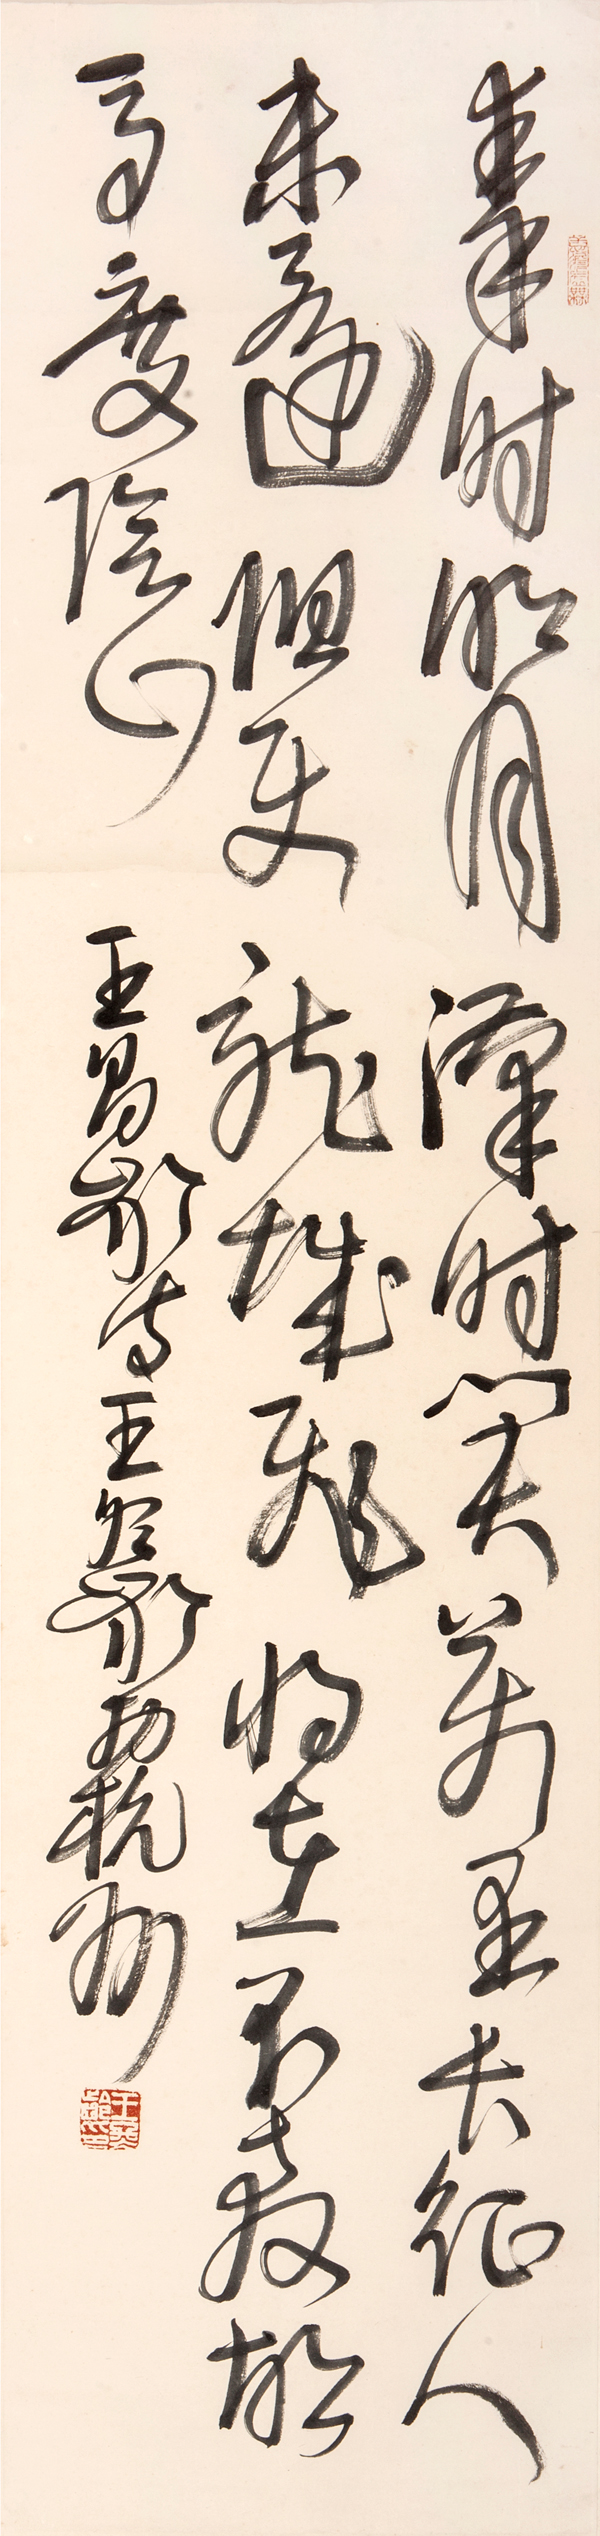 秦时明月漢时関萬里长征人
未還但使龍城飛将在不教胡
馬度陰山 王昌齡诗 王冬齡 杭州
王冬齡印